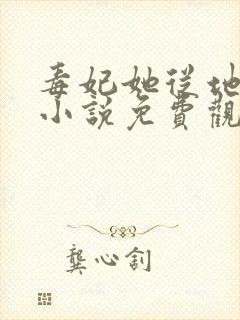 毒妃她从地
小说免費觀
龔心釗